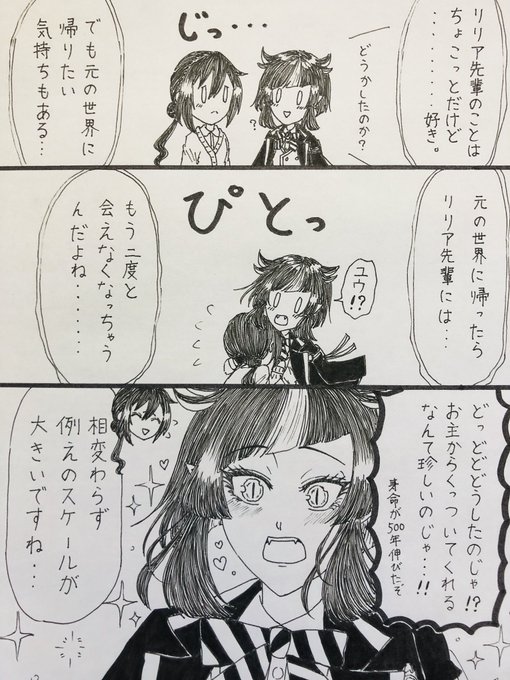 リリア先輩のことは
ちょこっとだけど
・・・・・・・・好き。
じっ・・・
どうかしたのか？
？
でも元の世界に
帰りたい
気持ちもある・・・
元の世界に帰ったら
リリア先輩には・・・
ぴとっ
ユウ!?
もう二度と
会えなくなっちゃう
んだよね・・・・・・
どっどどどうしたのじゃ!?
お主からくっついてくれる
なんて珍しいのじゃ・・!!
寿命が500年伸びたぞ
相変わらず
例えのスケールが
大きいですね・・・